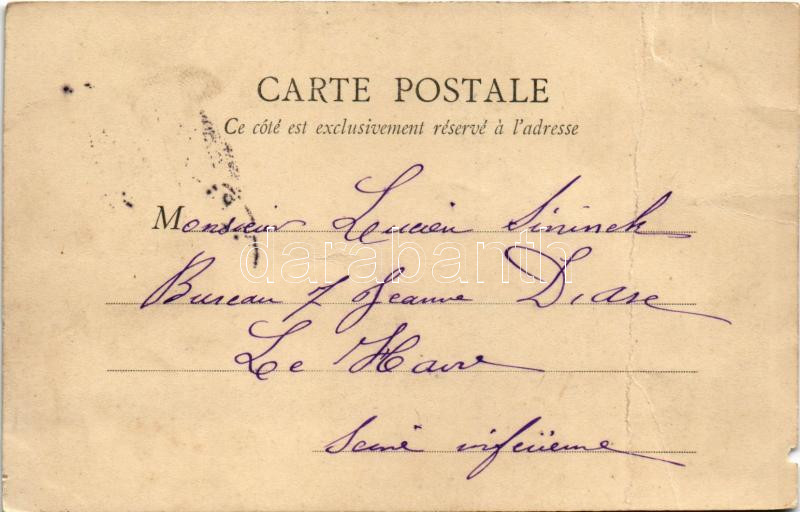 CARTE POSTALE
Ce côté est exclusivement réservé à l'adresse
Monsieur Lucien
darabanth
Bureau 7 Jeanne D'Arc
Le Havre
Seine inférieure